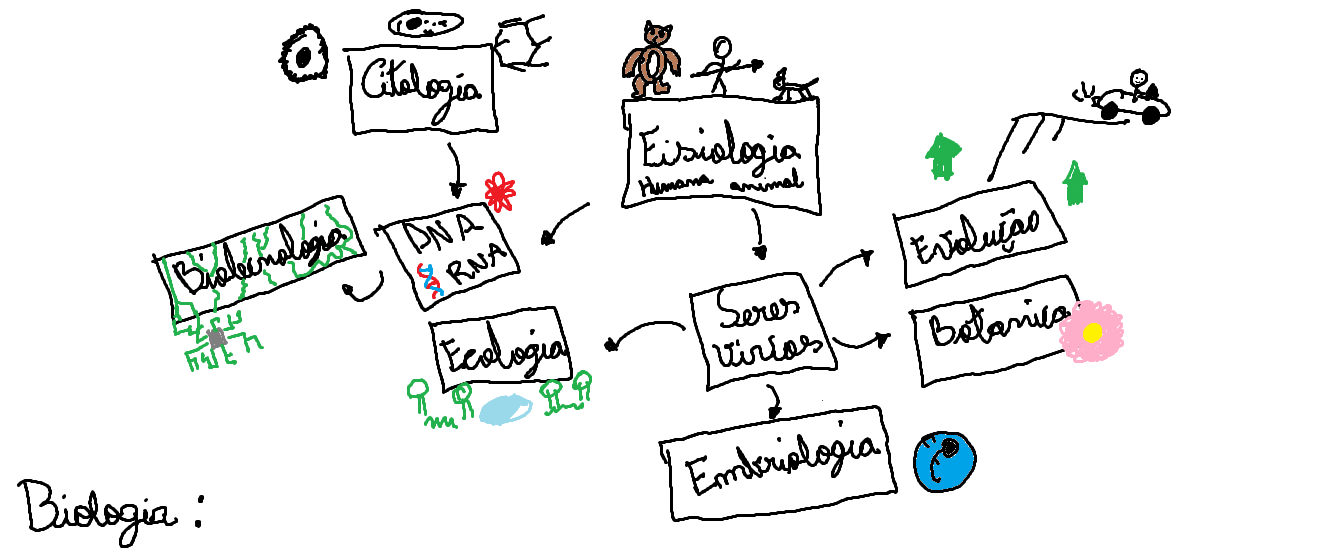 Citologia
Fisiologia
Humana animal
Biotecnologia
DNA
RNA
Evolução
Seres
Vivos
Botanica
Ecologia
Embriologia
Biologia: